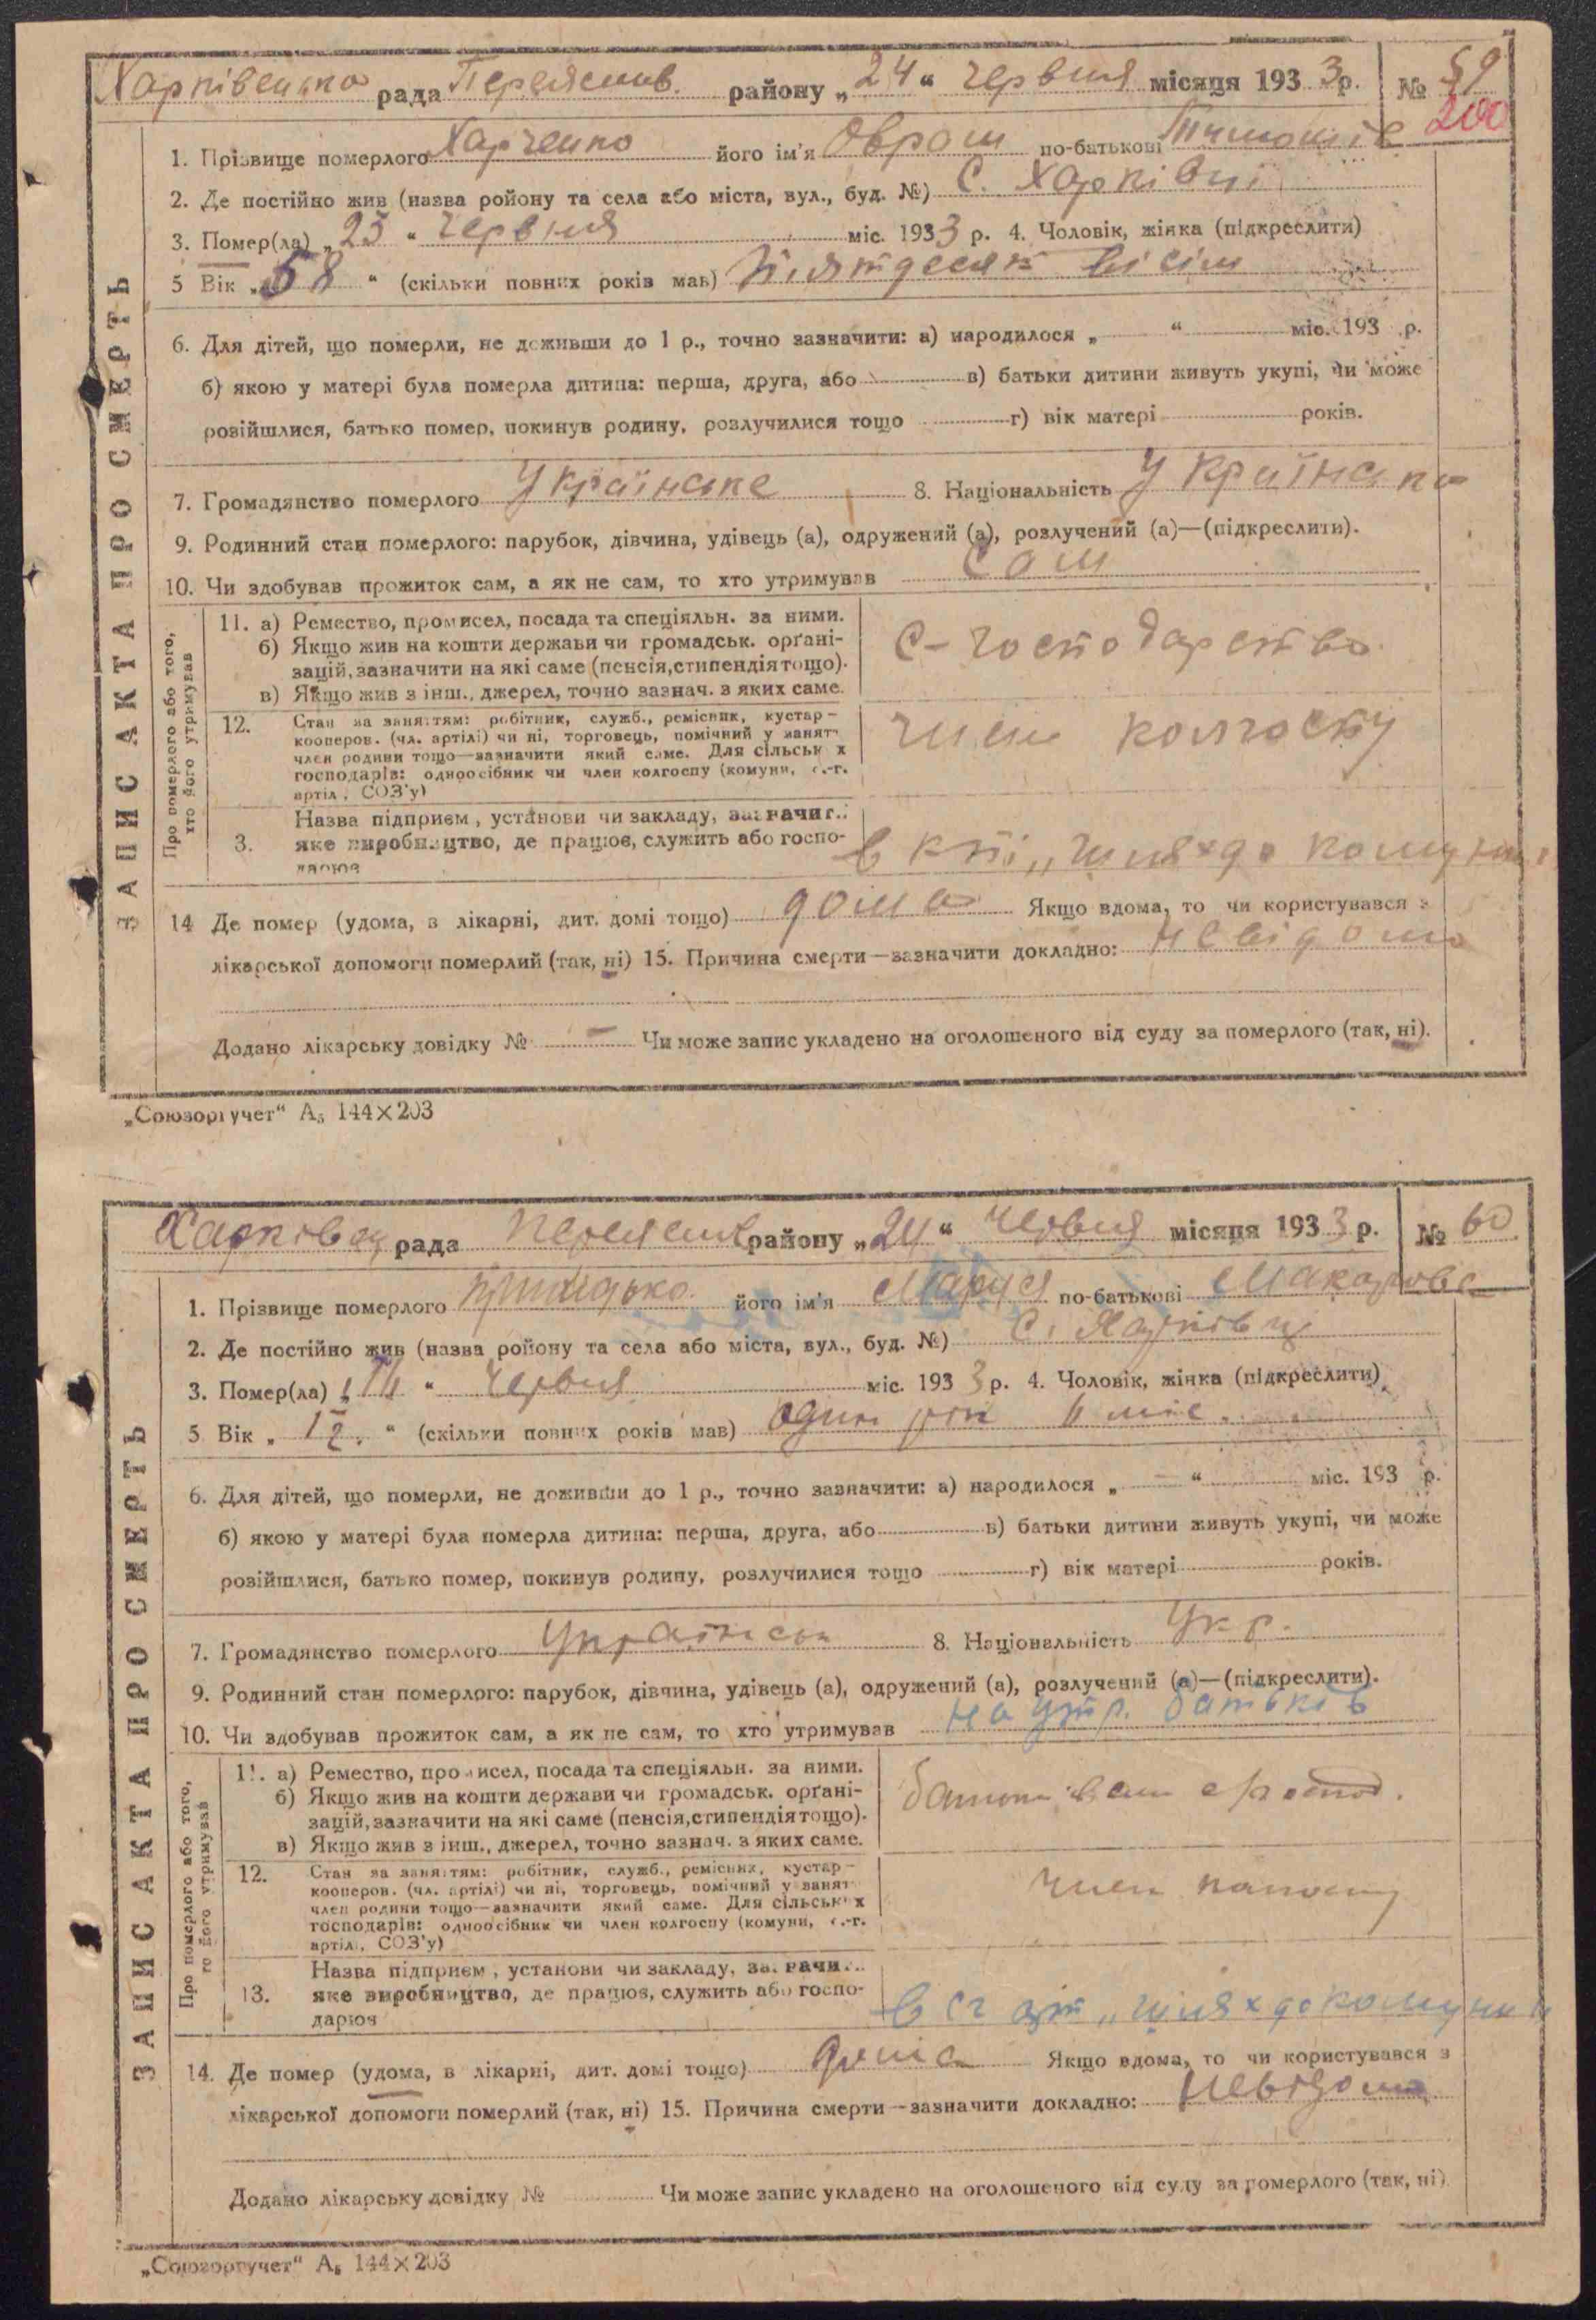 Харківецька рада Переяслав. району „24“ червня місяця 1933 р. № 59
200
ЗАПИС АКТА ПРО СМЕРТЬ
1. Прізвище померлого Харченко його ім'я Оврам по-батькові
2. Де постійно жив (назва ройону та села або міста, вул., буд. №) С. Харківці
3. Помер(ла) „23“ червня міс. 1933 р. 4. Чоловік, жінка (підкреслити)
5 Вік „58“ (скільки повних років мав) Пятдесят вісім
6. Для дітей, що померли, не доживши до 1 р., точно зазначити: а) народилося „ “ міс. 193 р.
б) якою у матері була померла дитина: перша, друга, або в) батьки дитини живуть укупі, чи може
розійшлися, батько помер, покинув родину, розлучилися тощо г) вік матері років.
7. Громадянство померлого Українське 8. Національність Українска
9. Родинний стан померлого: парубок, дівчина, удівець (а), одружений (а), розлучений (а)—(підкреслити).
10. Чи здобував прожиток сам, а як не сам, то хто утримував Сам
Про померлого або того, хто його утримував
11. а) Ремество, промисел, посада та спеціяльн. за ними.
б) Якщо жив на кошти держави чи громадськ. орґані-
зацій, зазначити на які саме (пенсія, стипендія тощо).
в) Якщо жив з інш., джерел, точно зазнач. з яких саме.
С-господарство
12. Стан за заняттям: робітник, служб., ремісник, кустар-
кооперов. (чл. артілі) чи ні, торговець, помічний у занят
член родини тощо—зазначити який саме. Для сільськ х
господарів: одноосібник чи член колгоспу (комуни, с.-г.
артіл , СОЗ'у)
член колгоспу
3. Назва підприєм , установи чи закладу, зазначит.:
яке виробництво, де працює, служить або госпо-
дарює
в „шлях до комуни
14 Де помер (удома, в лікарні, дит. домі тощо) дома Якщо вдома, то чи користувався з
лікарської допомоги померлий (так, ні) 15. Причина смерти—зазначити докладно: невідома
Додано лікарську довідку № — Чи може запис укладено на оголошеного від суду за померлого (так, ні).
„Союзоргучет“ А₅ 144×203
Харківец. рада Переяслав району „24“ червня місяця 1933 р. № 60
ЗАПИС АКТА ПРО СМЕРТЬ
1. Прізвище померлого його ім'я Маруся по-батькові Макарова
2. Де постійно жив (назва ройону та села або міста, вул., буд. №) С. Харківці
3. Помер(ла) „ “ червня міс. 1933 р. 4. Чоловік, жінка (підкреслити)
5 Вік „ “ (скільки повних років мав) один рік 6 міс.
6. Для дітей, що померли, не доживши до 1 р., точно зазначити: а) народилося „ — “ міс. 193 р.
б) якою у матері була померла дитина: перша, друга, або в) батьки дитини живуть укупі, чи може
розійшлися, батько помер, покинув родину, розлучилися тощо г) вік матері років.
7. Громадянство померлого 8. Національність Укр.
9. Родинний стан померлого: парубок, дівчина, удівець (а), одружений (а), розлучений (а)—(підкреслити).
10. Чи здобував прожиток сам, а як не сам, то хто утримував на утр. батьків
Про померлого або того, го його утримував
11. а) Ремество, промисел, посада та спеціяльн. за ними.
б) Якщо жив на кошти держави чи громадськ. орґані-
зацій, зазначити на які саме (пенсія, стипендія тощо).
в) Якщо жив з інш., джерел, точно зазнач. з яких саме.
12. Стан за заняттям: робітник, служб., ремісник, кустар-
кооперов. (чл. артілі) чи ні, торговець, помічний у занят
член родини тощо—зазначити який саме. Для сільськ х
господарів: одноосібник чи член колгоспу (комуни, с.-г.
артіл , СОЗ'у)
член
13. Назва підприєм , установи чи закладу, зазначи..
яке виробництво, де працює, служить або госпо-
дарює
в сг арт „шлях до комуни“
14. Де помер (удома, в лікарні, дит. домі тощо) дома Якщо вдома, то чи користувався з
лікарської допомоги померлий (так, ні) 15. Причина смерти—зазначити докладно: невідома
Додано лікарську довідку № Чи може запис укладено на оголошеного від суду за померлого (так, ні)
„Союзоргучет“ А₅ 144×203